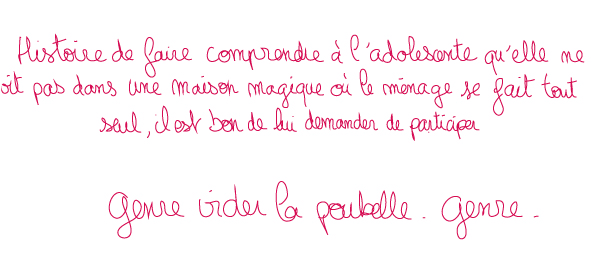 Histoire de faire comprendre à l'adolescente qu'elle ne
vit pas dans une maison magique où le ménage se fait tout
seul, il est bon de lui demander de participer
Genre vider la poubelle. Genre.